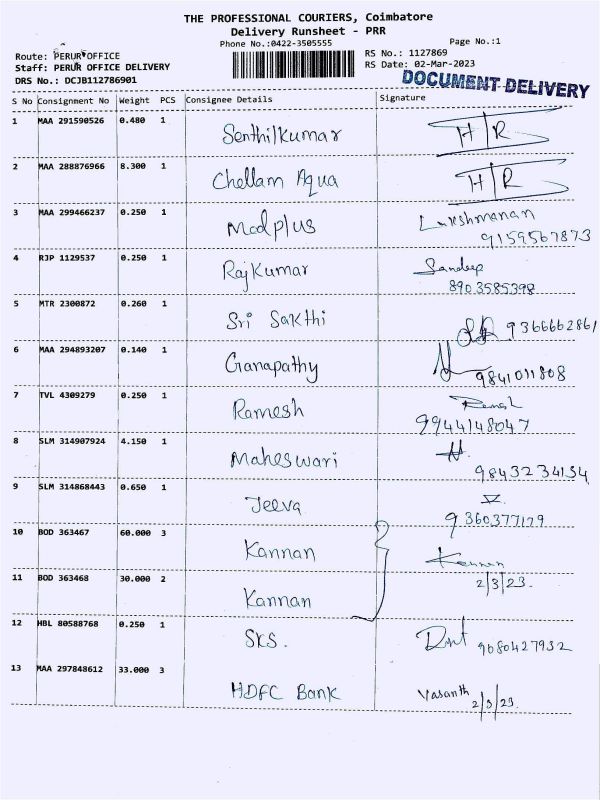 THE PROFESSIONAL COURIERS, Coimbatore
Delivery Runsheet - PRR
Phone No.:0422-3505555
Page No.:1
Route: PERUR OFFICE
RS No.: 1127869
Staff: PERUR OFFICE DELIVERY
RS Date: 02-Mar-2023
DRS No.: DCJB112786901
DOCUMENT DELIVERY
S No Consignment No Weight PCS Consignee Details Signature
1 MAA 291590526 0.480 1 Senthilkumar H/R
2 MAA 288876966 8.300 1 Chellam Aqua H/R
3 MAA 299466237 0.250 1 Medplus Lakshmanan
9159567873
4 RJP 1129537 0.250 1 Rajkumar Sandeep
8903585398
5 MTR 2300872 0.260 1 Sri Sakthi
9366662861
6 MAA 294893207 0.140 1 Ganapathy
9841011808
7 TVL 4309279 0.250 1 Ramesh Ramesh
9944148047
8 SLM 314907924 4.150 1 Maheswari
9843234134
9 SLM 314868443 0.650 1 Jeeva
9360377179
10 BOD 363467 60.000 3 Kannan Kannan
11 BOD 363468 30.000 2 Kannan 2/3/23.
12 HBL 80588768 0.250 1 SKS. 9080427932
13 MAA 297848612 33.000 3 HDFC Bank Vasanth
2/3/23.